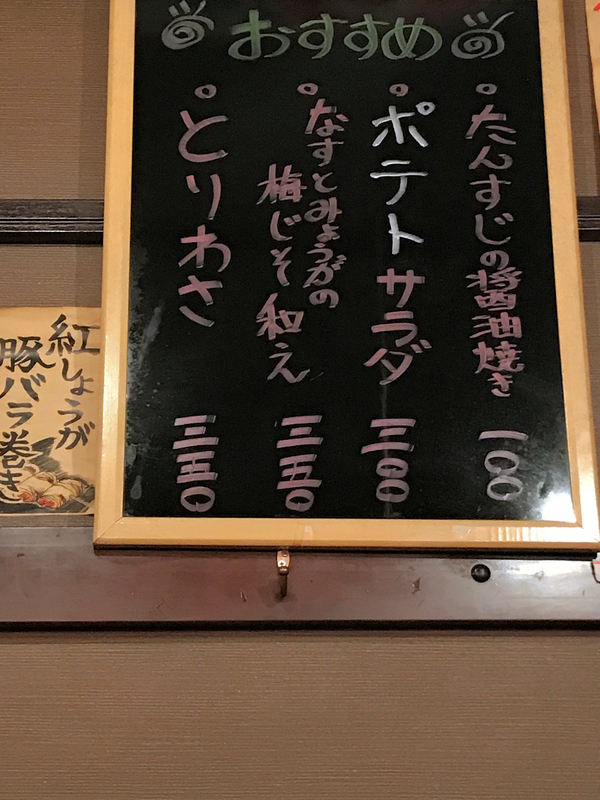 おすすめ
たんすじの醤油焼き 一〇〇
ポテトサラダ 三〇〇
なすとみょうがの
梅じそ和え 三五〇
とりわさ 三五〇
紅しょうが
豚バラ巻き